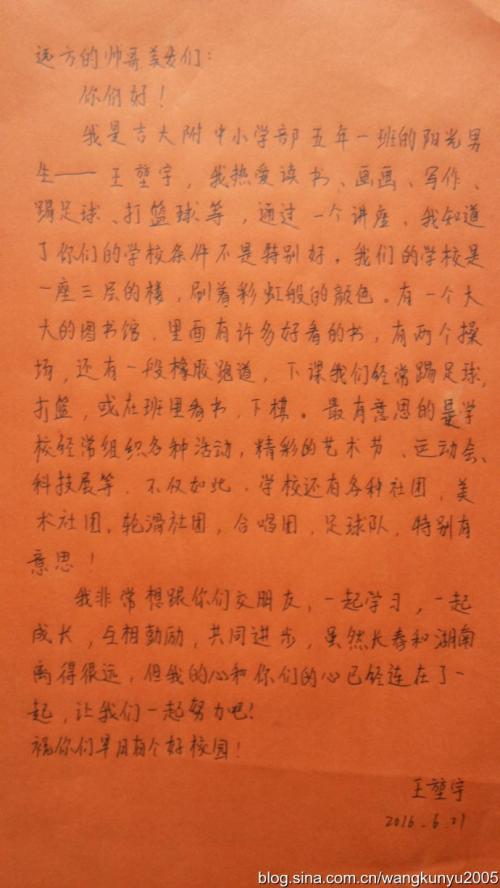 远方的帅哥美女们：
你们好！
我是吉大附中小学部五年一班的阳光男
生——王堃宇，我热爱读书、画画、写作、
踢足球、打篮球等，通过一个讲座，我知道
了你们的学校条件不是特别好。我们的学校是
一座三层的楼，刷着彩虹般的颜色。有一个大
大的图书馆，里面有许多好看的书，有两个操
场，还有一段橡胶跑道，下课我们经常踢足球，
打篮，或在班里看书，下棋。最有意思的是学
校经常组织各种活动，精彩的艺术节、运动会、
科技展等，不仅如此，学校还有各种社团，美
术社团，轮滑社团，合唱团，足球队，特别有
意思！
我非常想跟你们交朋友，一起学习，一起
成长，互相勉励，共同进步，虽然长春和湖南
离得很远，但我的心和你们的心已经连在了一
起，让我们一起努力吧！
祝你们早日有个好校园！
王堃宇
2016.6.21
blog.sina.com.cn/wangkunyu2005